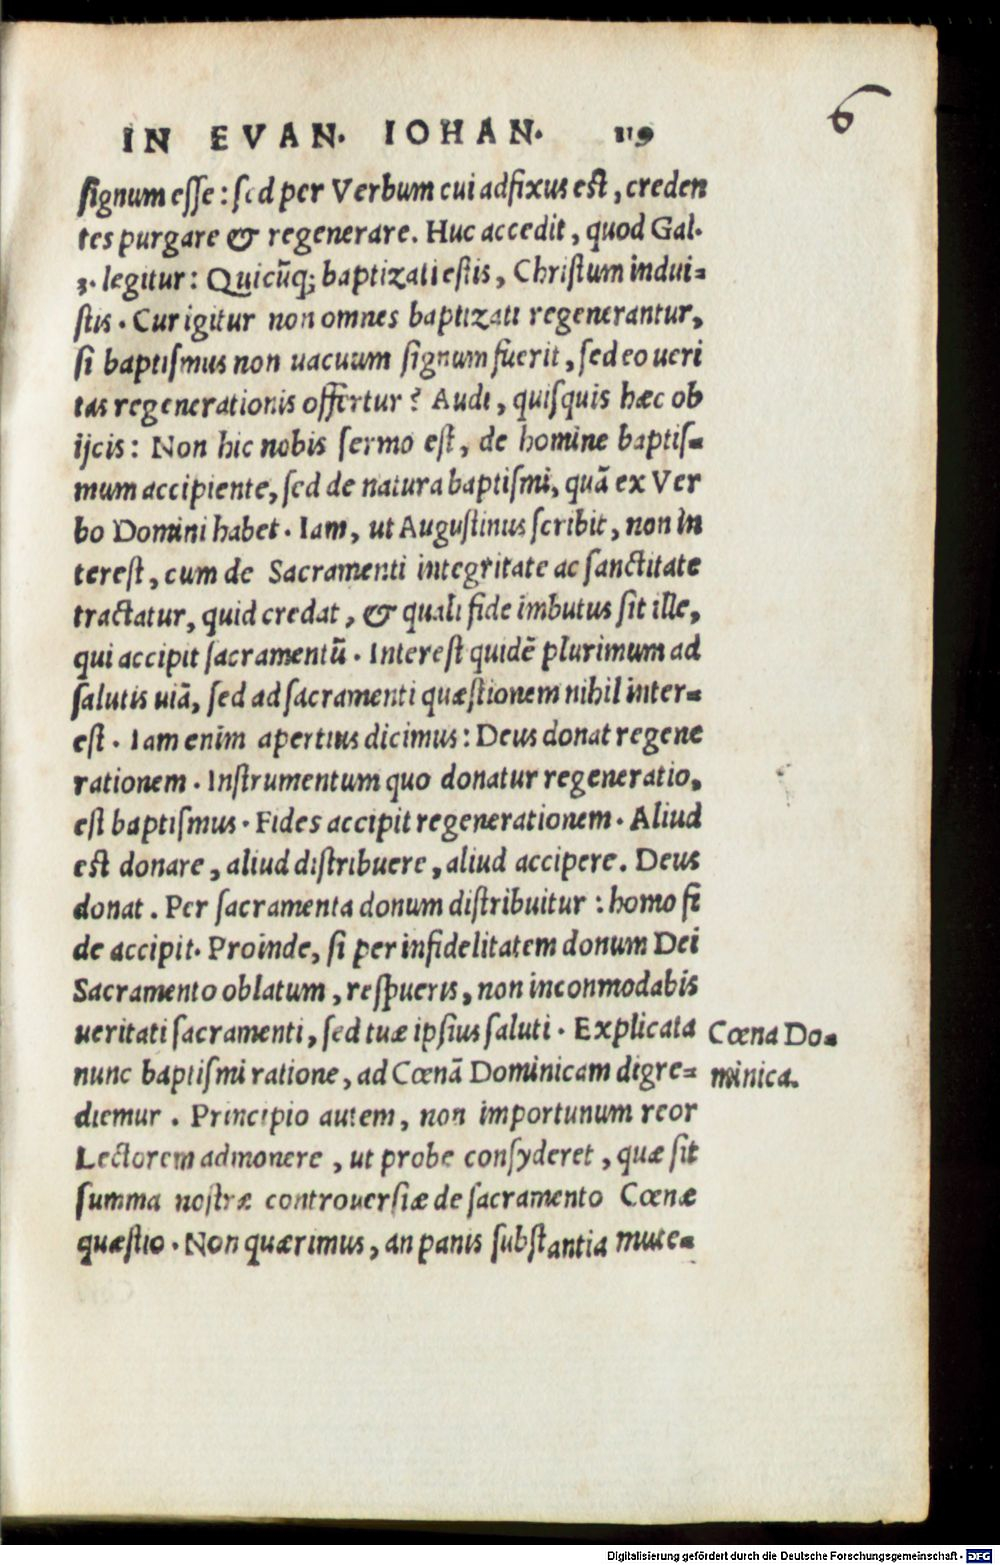 6
IN EVAN. IOHAN. 119
ſignum eſſe : ſed per Verbum cui adfixus eſt, creden
tes purgare & regenerare. Huc accedit, quod Gal.
3. legitur: Quicũq; baptizati eſtis, Chriſtum indui=
ſtis. Cur igitur non omnes baptizati regenerantur,
ſi baptiſmus non uacuum ſignum fuerit, ſed eo ueri
tas regenerationis offertur? Audi, quiſquis hæc ob
ijcis: Non hic nobis ſermo eſt, de homine baptiſ=
mum accipiente, ſed de natura baptiſmi, quã ex Ver
bo Domini habet. Iam, ut Auguſtinus ſcribit, non in
tereſt, cum de Sacramenti integritate ac ſanctitate
tractatur, quid credat, & quali fide imbutus ſit ille,
qui accipit ſacramentũ. Intereſt quidẽ plurimum ad
ſalutis uiã, ſed ad ſacramenti quæſtionem nihil inter=
eſt. Iam enim apertius dicimus: Deus donat regene
rationem. Inſtrumentum quo donatur regeneratio,
eſt baptiſmus. Fides accipit regenerationem. Aliud
eſt donare, aliud diſtribuere, aliud accipere. Deus
donat. Per ſacramenta donum diſtribuitur: homo fi
de accipit. Proinde, ſi per infidelitatem donum Dei
Sacramento oblatum, reſpueris, non inconmodabis
ueritati ſacramenti, ſed tuæ ipſius ſaluti. Explicata
nunc baptiſmi ratione, ad Cœnã Dominicam digre=
diemur. Principio autem, non importunum reor
Lectorem admonere, ut probe conſyderet, quæ ſit
ſumma noſtræ controuerſiæ de ſacramento Cœnæ
quæſtio. Non quærimus, an panis ſubſtantia mute=
Cœna Do=
minica.
Digitalisierung gefördert durch die Deutsche Forschungsgemeinschaft - DFG